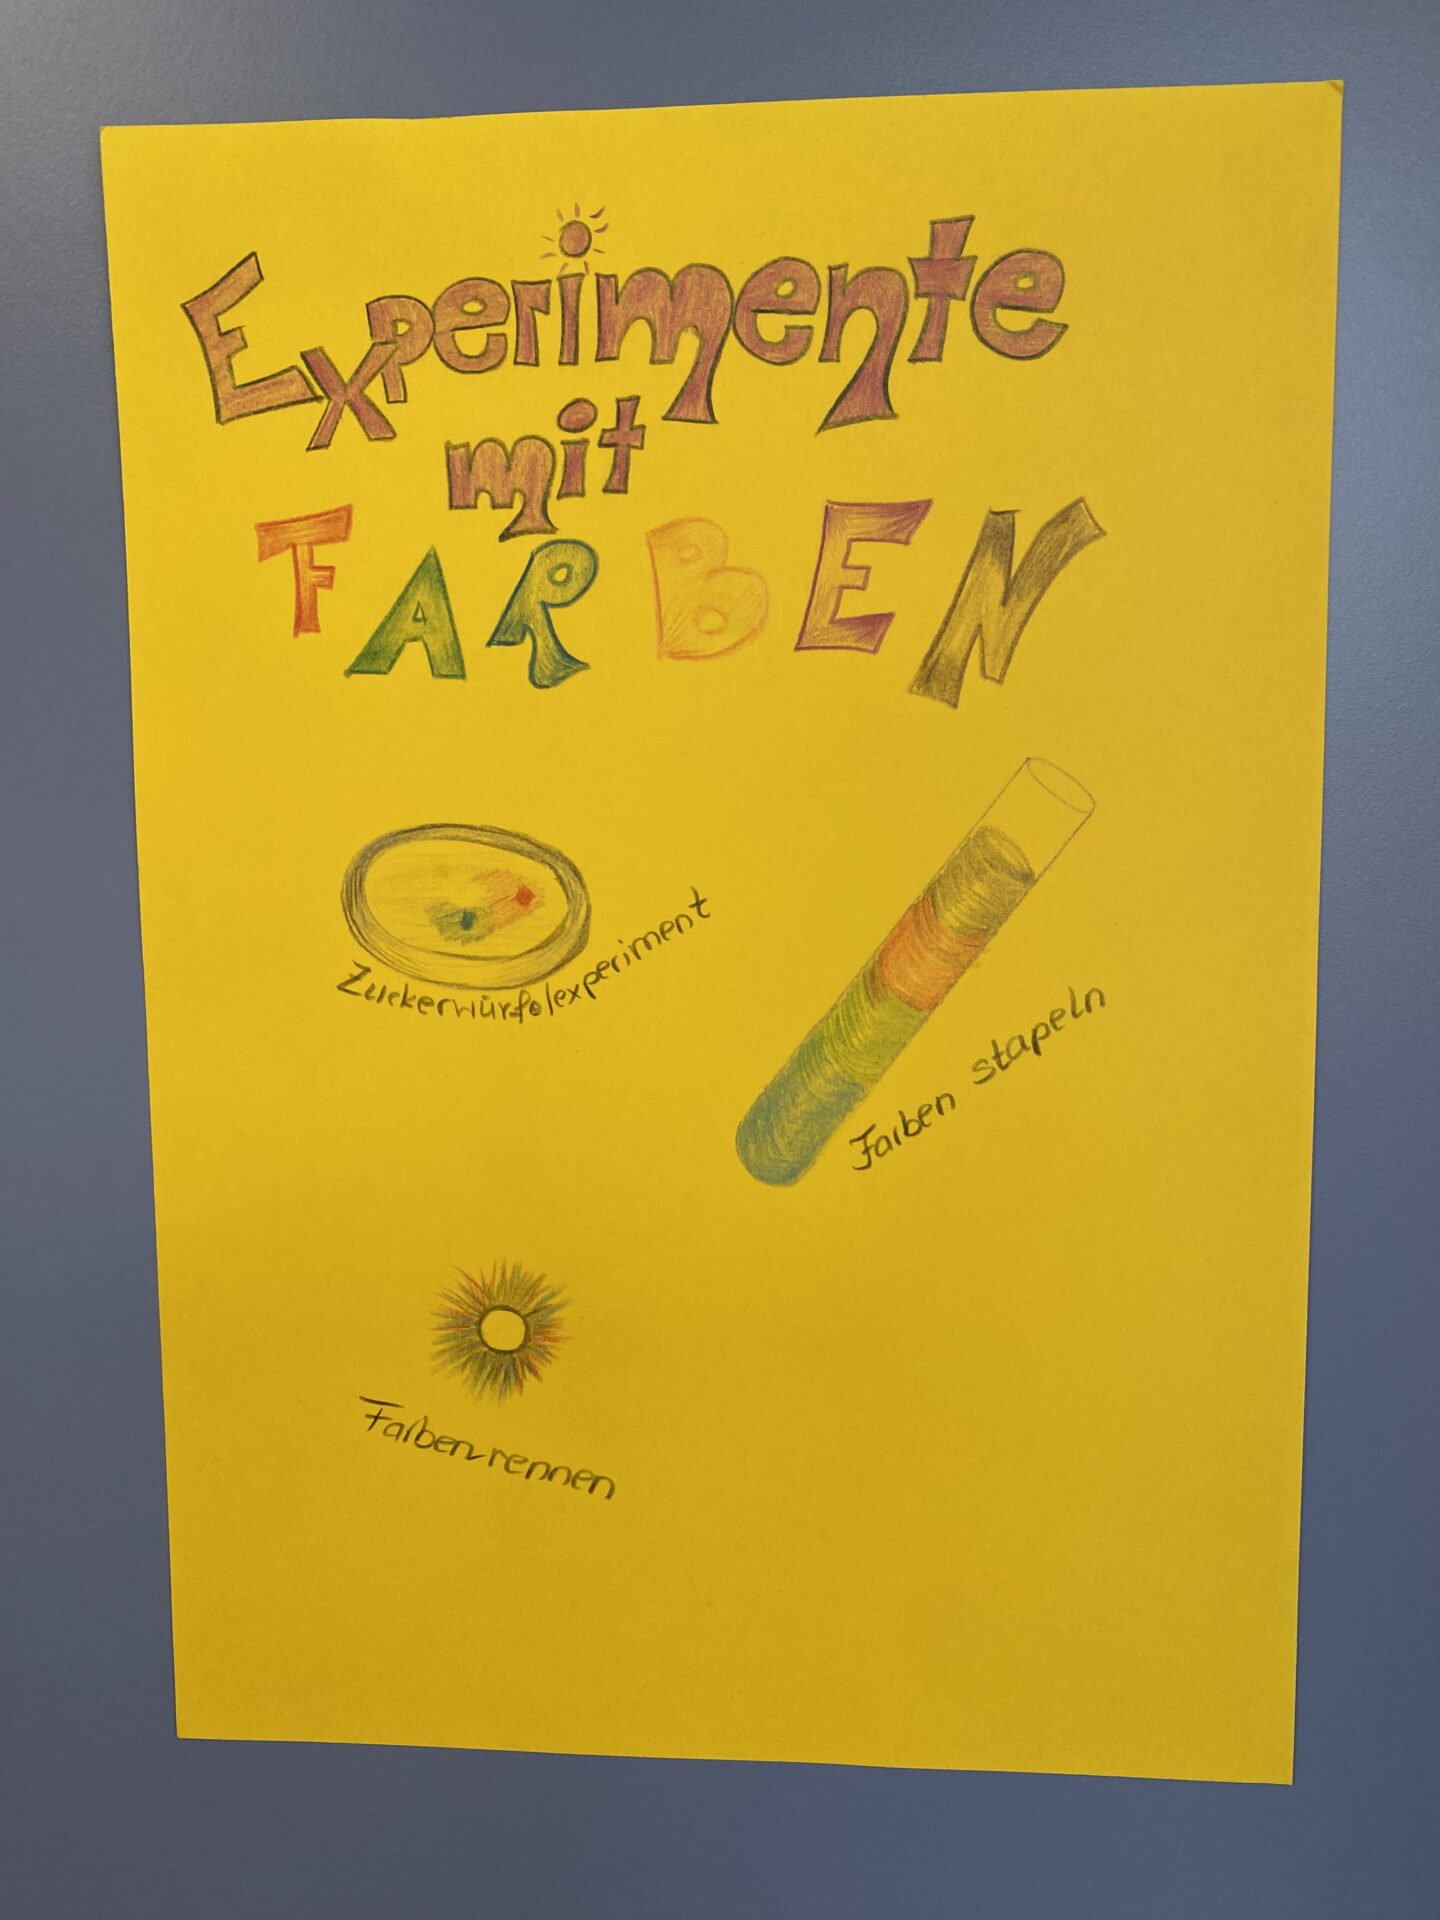 Experimente
mit
FARBEN
Zuckerwürfelexperiment
Farben stapeln
Farben-rennen